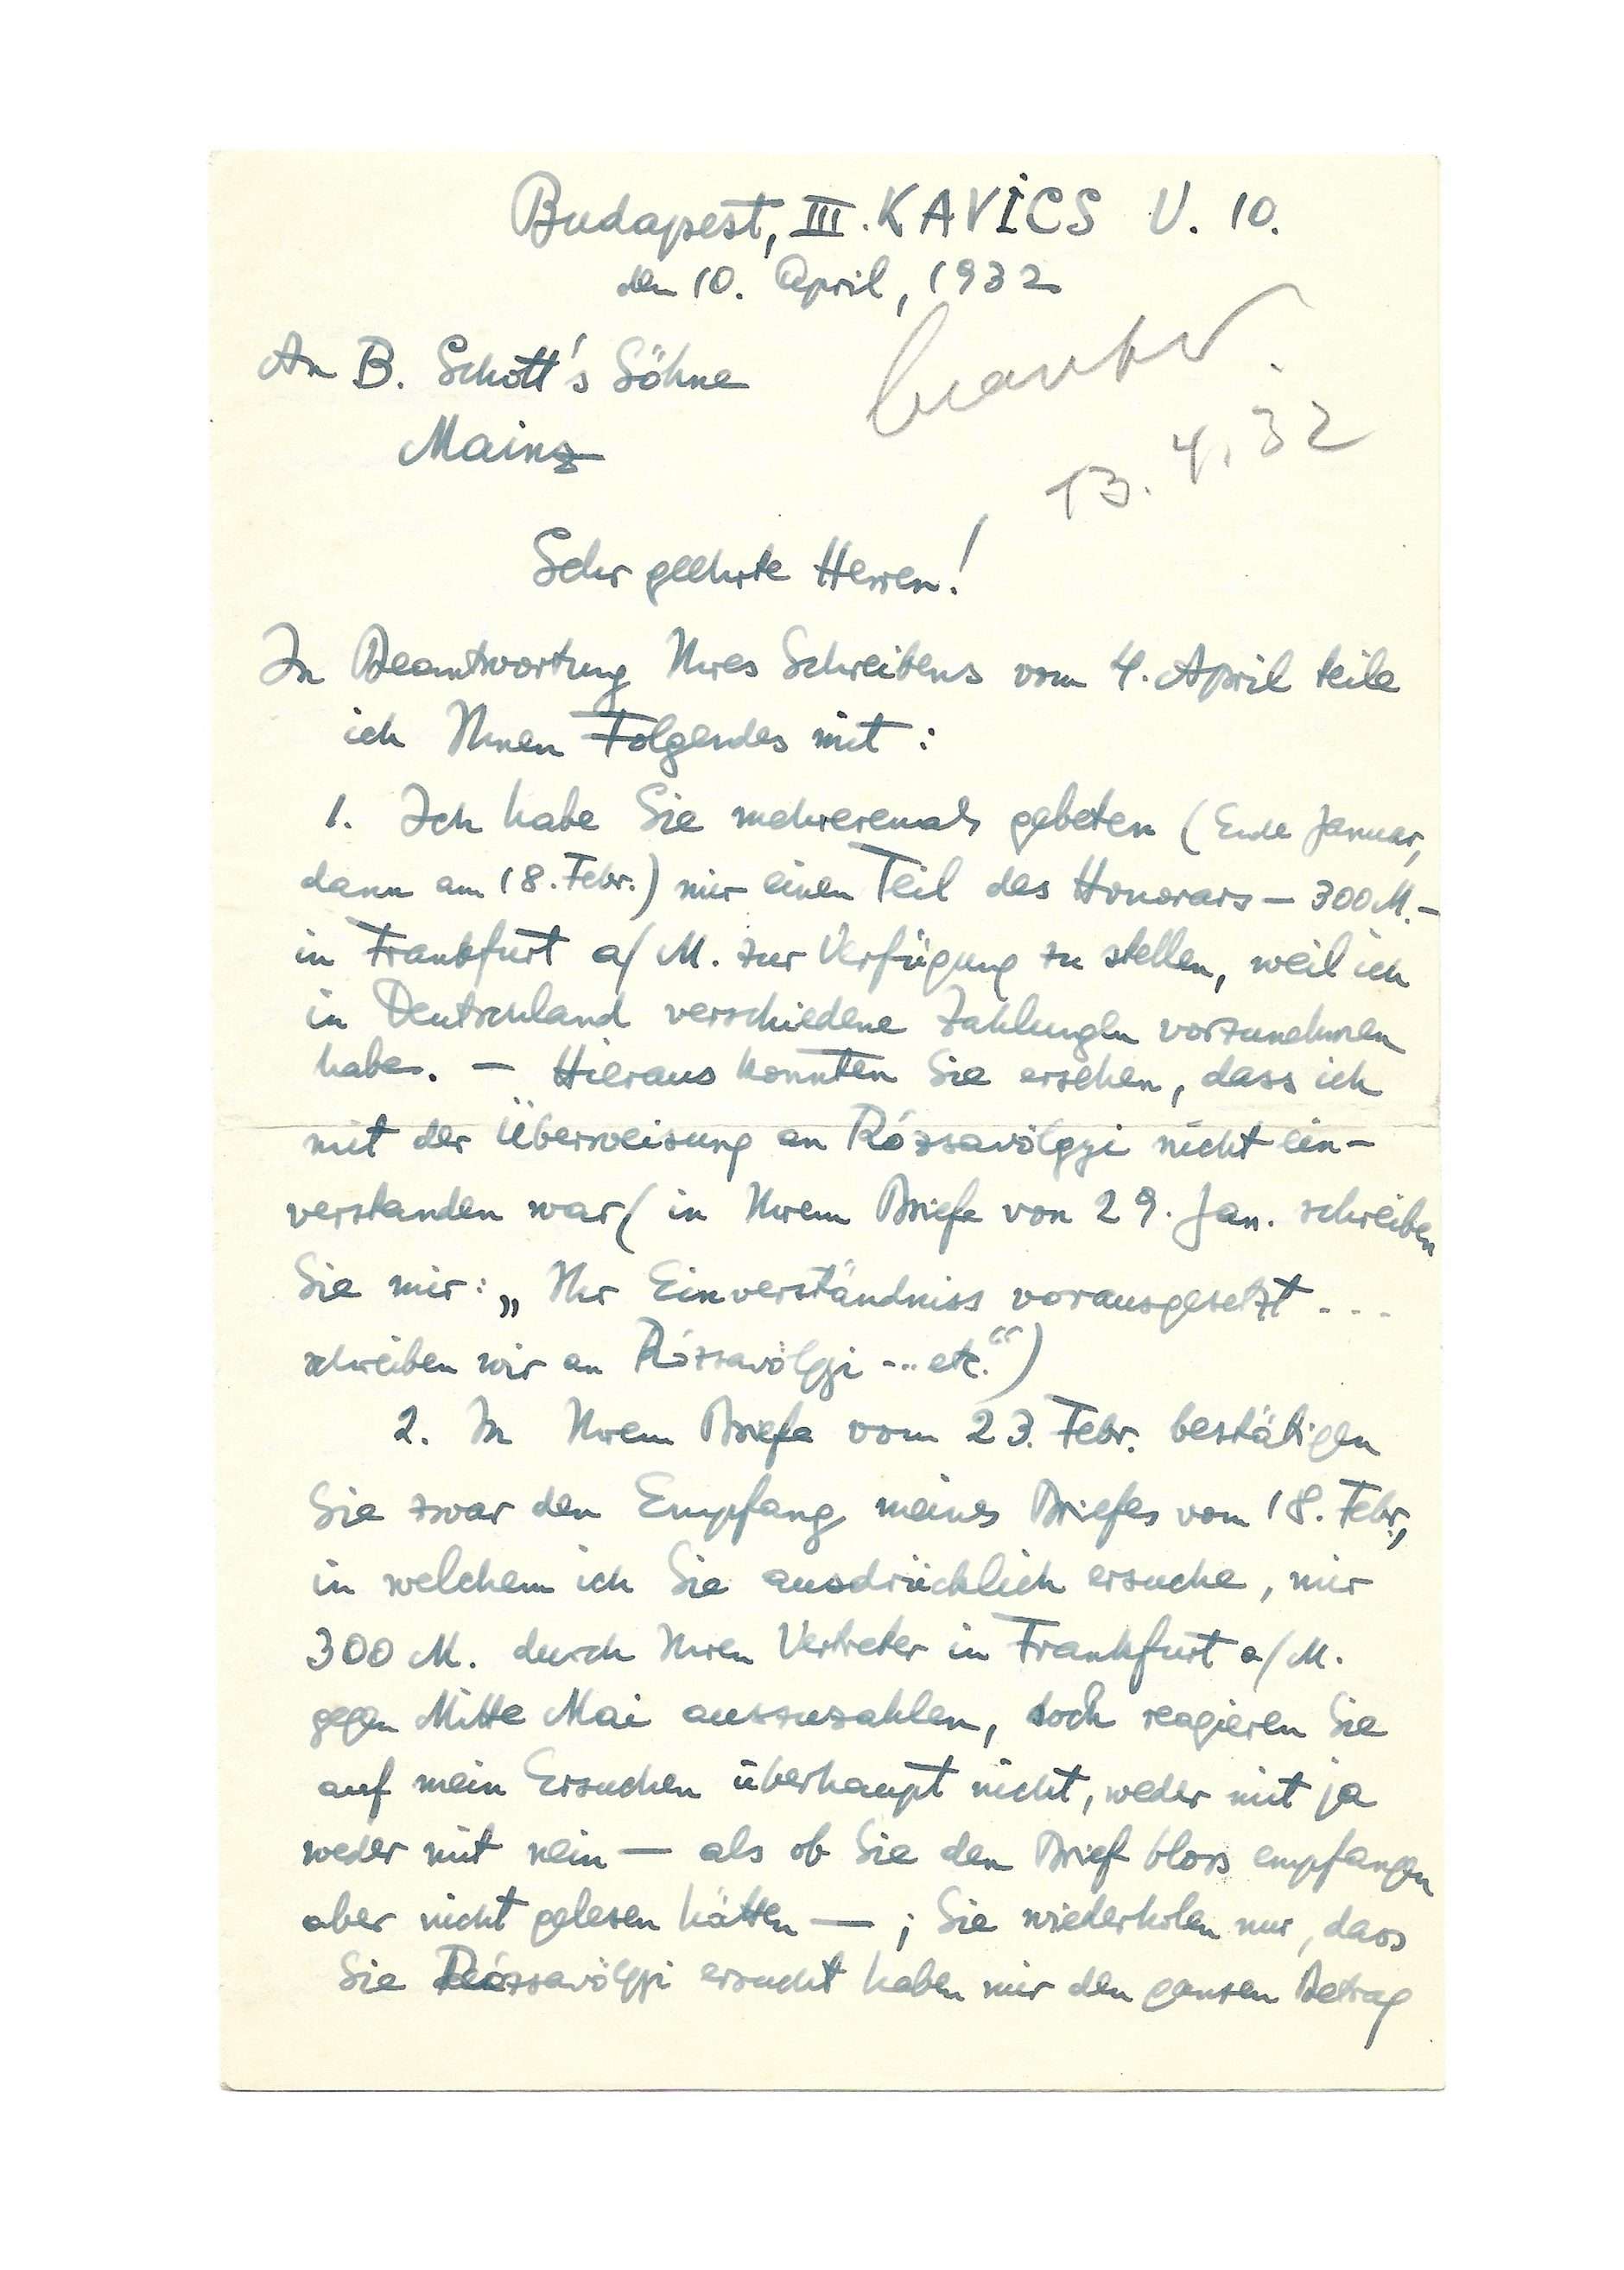 Budapest, III. KAVICS U. 10.
den 10. April, 1932
An B. Schott's Söhne
Mainz
beantw.
13.4.32
Sehr geehrte Herren!
In Beantwortung Ihres Schreibens vom 4. April teile
ich Ihnen Folgendes mit:
1. Ich habe Sie mehreremals gebeten (Ende Januar,
dann am 18. Febr.) mir einen Teil des Honorars — 300 M. —
in Frankfurt a/M. zur Verfügung zu stellen, weil ich
in Deutschland verschiedene Zahlungen vorzunehmen
habe. — Hieraus konnten Sie ersehen, dass ich
mit der Überweisung an Rózsavölgyi nicht ein-
verstanden war (in Ihrem Briefe von 29. Jan. schreiben
Sie mir: „Ihr Einverständniss vorausgesetzt ...
schreiben wir an Rózsavölgyi ... etc.“)
2. In Ihrem Briefe vom 23. Febr. bestätigen
Sie zwar den Empfang meines Briefes vom 18. Febr.,
in welchem ich Sie ausdrücklich ersuche, mir
300 M. durch Ihren Vertreter in Frankfurt a/M.
gegen Mitte Mai auszuzahlen, doch reagieren Sie
auf mein Ersuchen überhaupt nicht, weder mit ja
weder mit nein — als ob Sie den Brief bloss empfangen
aber nicht gelesen hätten — ; Sie wiederholen nur, dass
Sie Rózsavölgyi ersucht haben mir den ganzen Betrag